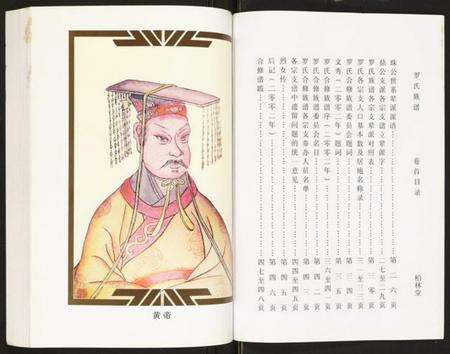 罗氏族谱 卷首目录 柏林堂
珠公世系辈派语 第二六页
各宗支谱立辈派字 二七至二九页
罗氏族谱各宗支辈派对州表 第三零页
罗氏各宗支人口基本数及居地名称录 三一至三三页
文秀(二零零二年)题词 第三五页
罗氏合修族谱委员会题词
罗氏合修族谱序(二零零二年) 三六至四一页
罗氏合修族谱委员会名目 第四二页
罗氏合修族谱各宗支参办人员名单 第四三页
各宗支谱中遗留问题的统一意见 四四至四五页
烈女传 第四五页
后记(二零零二年) 第四六页
合修谱跋 四七至四八页
黄帝